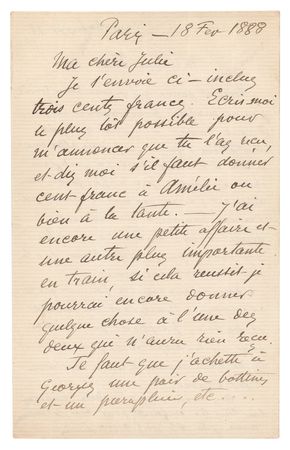 Paris — 18 Fev 1888
Ma chèri Julie
Je t'envoie ci-inclus
trois cents francs. Ecris moi
le plus tôt possible pour
m'annoncer que tu l'as reçu,
et dis moi s'il faut donner
cent franc à Amélie ou
bien à la tante. — J'ai
encore une petite affaire et
une autre plus importante
en train, si cela reussit je
pourrai encore donner
quelque chose à l'une des
deux qui n'aura rien reçu.
Je faut que j'achette à
Georges une pair de bottines
et un parapluie, etc....